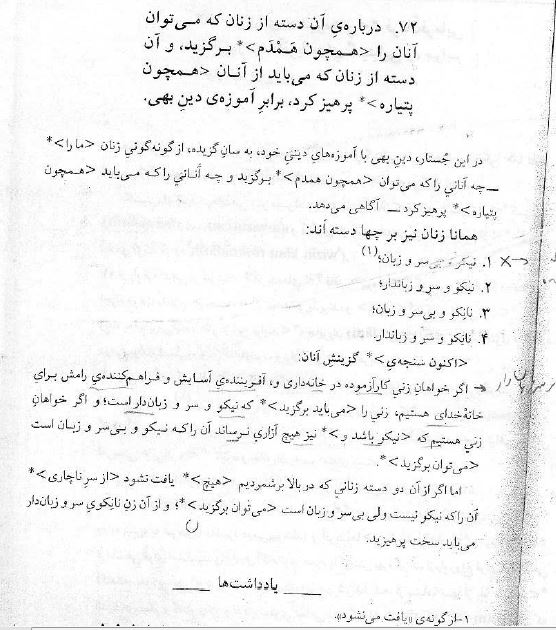 ۷۲. درباره‌ی آن دسته از زنان که می‌توان
آنان را <همچون هَمْدَم>* برگزید، و آن
دسته از زنان که می‌باید از آنان <همچون
پتیاره>* پرهیز کرد، برابرِ آموزه‌ی دینِ بهی.
در این جُستار، دینِ بهی با آموزه‌هایِ دینیِ خود، به سانِ گزیده، از گونه‌گونیِ زنان <ما را>*
ــ چه آنانی را که می‌توان <همچون همدم>* برگزید و چه آنانی را که می‌باید <همچون
پتیاره>* پرهیز کرد ــ آگاهی می‌دهد.
همانا زنان نیز بر چهار دسته اند:
۱. نیکو و بی‌سر و زبان؛(۱)
۲. نیکو و سر و زباندار؛
۳. نانِکو و بی‌سر و زبان؛
۴. نانِکو و سر و زباندار.
<اکنون سنجه‌یِ>* گزینشِ آنان:
اگر خواهانِ زنیِ کارآزموده در خانه‌داری و، آفریننده‌یِ آسایش و فراهم‌کننده‌یِ رامش برای
خانهٔ خدای هستیم، زنی را <می‌باید برگزید>* که نیکو و سر و زبان‌دار است؛ و اگر خواهانِ
زنی هستیم که <نیکو باشد و>* نیز هیچ آزاری نرساند آن را که نیکو و بی‌سر و زبان است
<می‌توان برگزید>*.
اما اگر از آن دو دسته زنانی که در بالا برشمردیم <هیچ>* یافت نشود <از سرِ ناچاری>*
آن را که نیکو نیست ولی بی‌سر و زبان است <می‌توان برگزید>*؛ و از آن زنِ نانِکویِ سر و زبان‌دار
می‌باید سخت پرهیزید.
یادداشت‌ها
۱-از گونه‌ی «یافت می‌نشود».